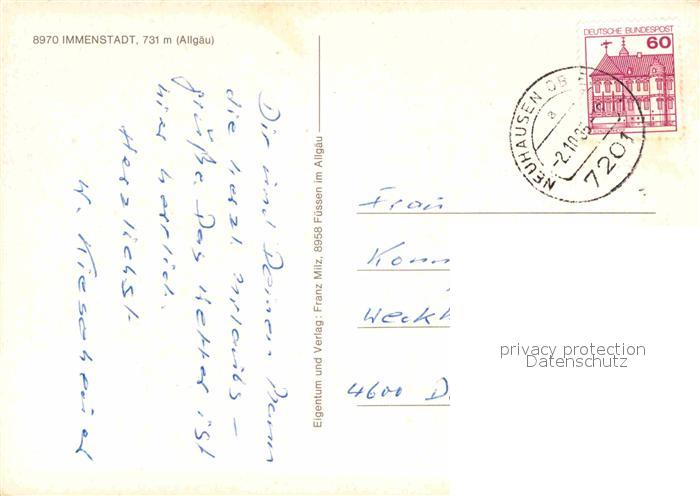 8970 IMMENSTADT, 731 m (Allgäu)
Dir und Deinen
die herzl. Urlaubs-
grüße. Das Wetter ist
hier herrlich.
Herzlichst
W.
Eigentum und Verlag: Franz Milz, 8958 Füssen im Allgäu
DEUTSCHE BUNDESPOST
60
NEUHAUSEN OB
a
-2.10.85
7201
Frau
4600 D
privacy protection
Datenschutz